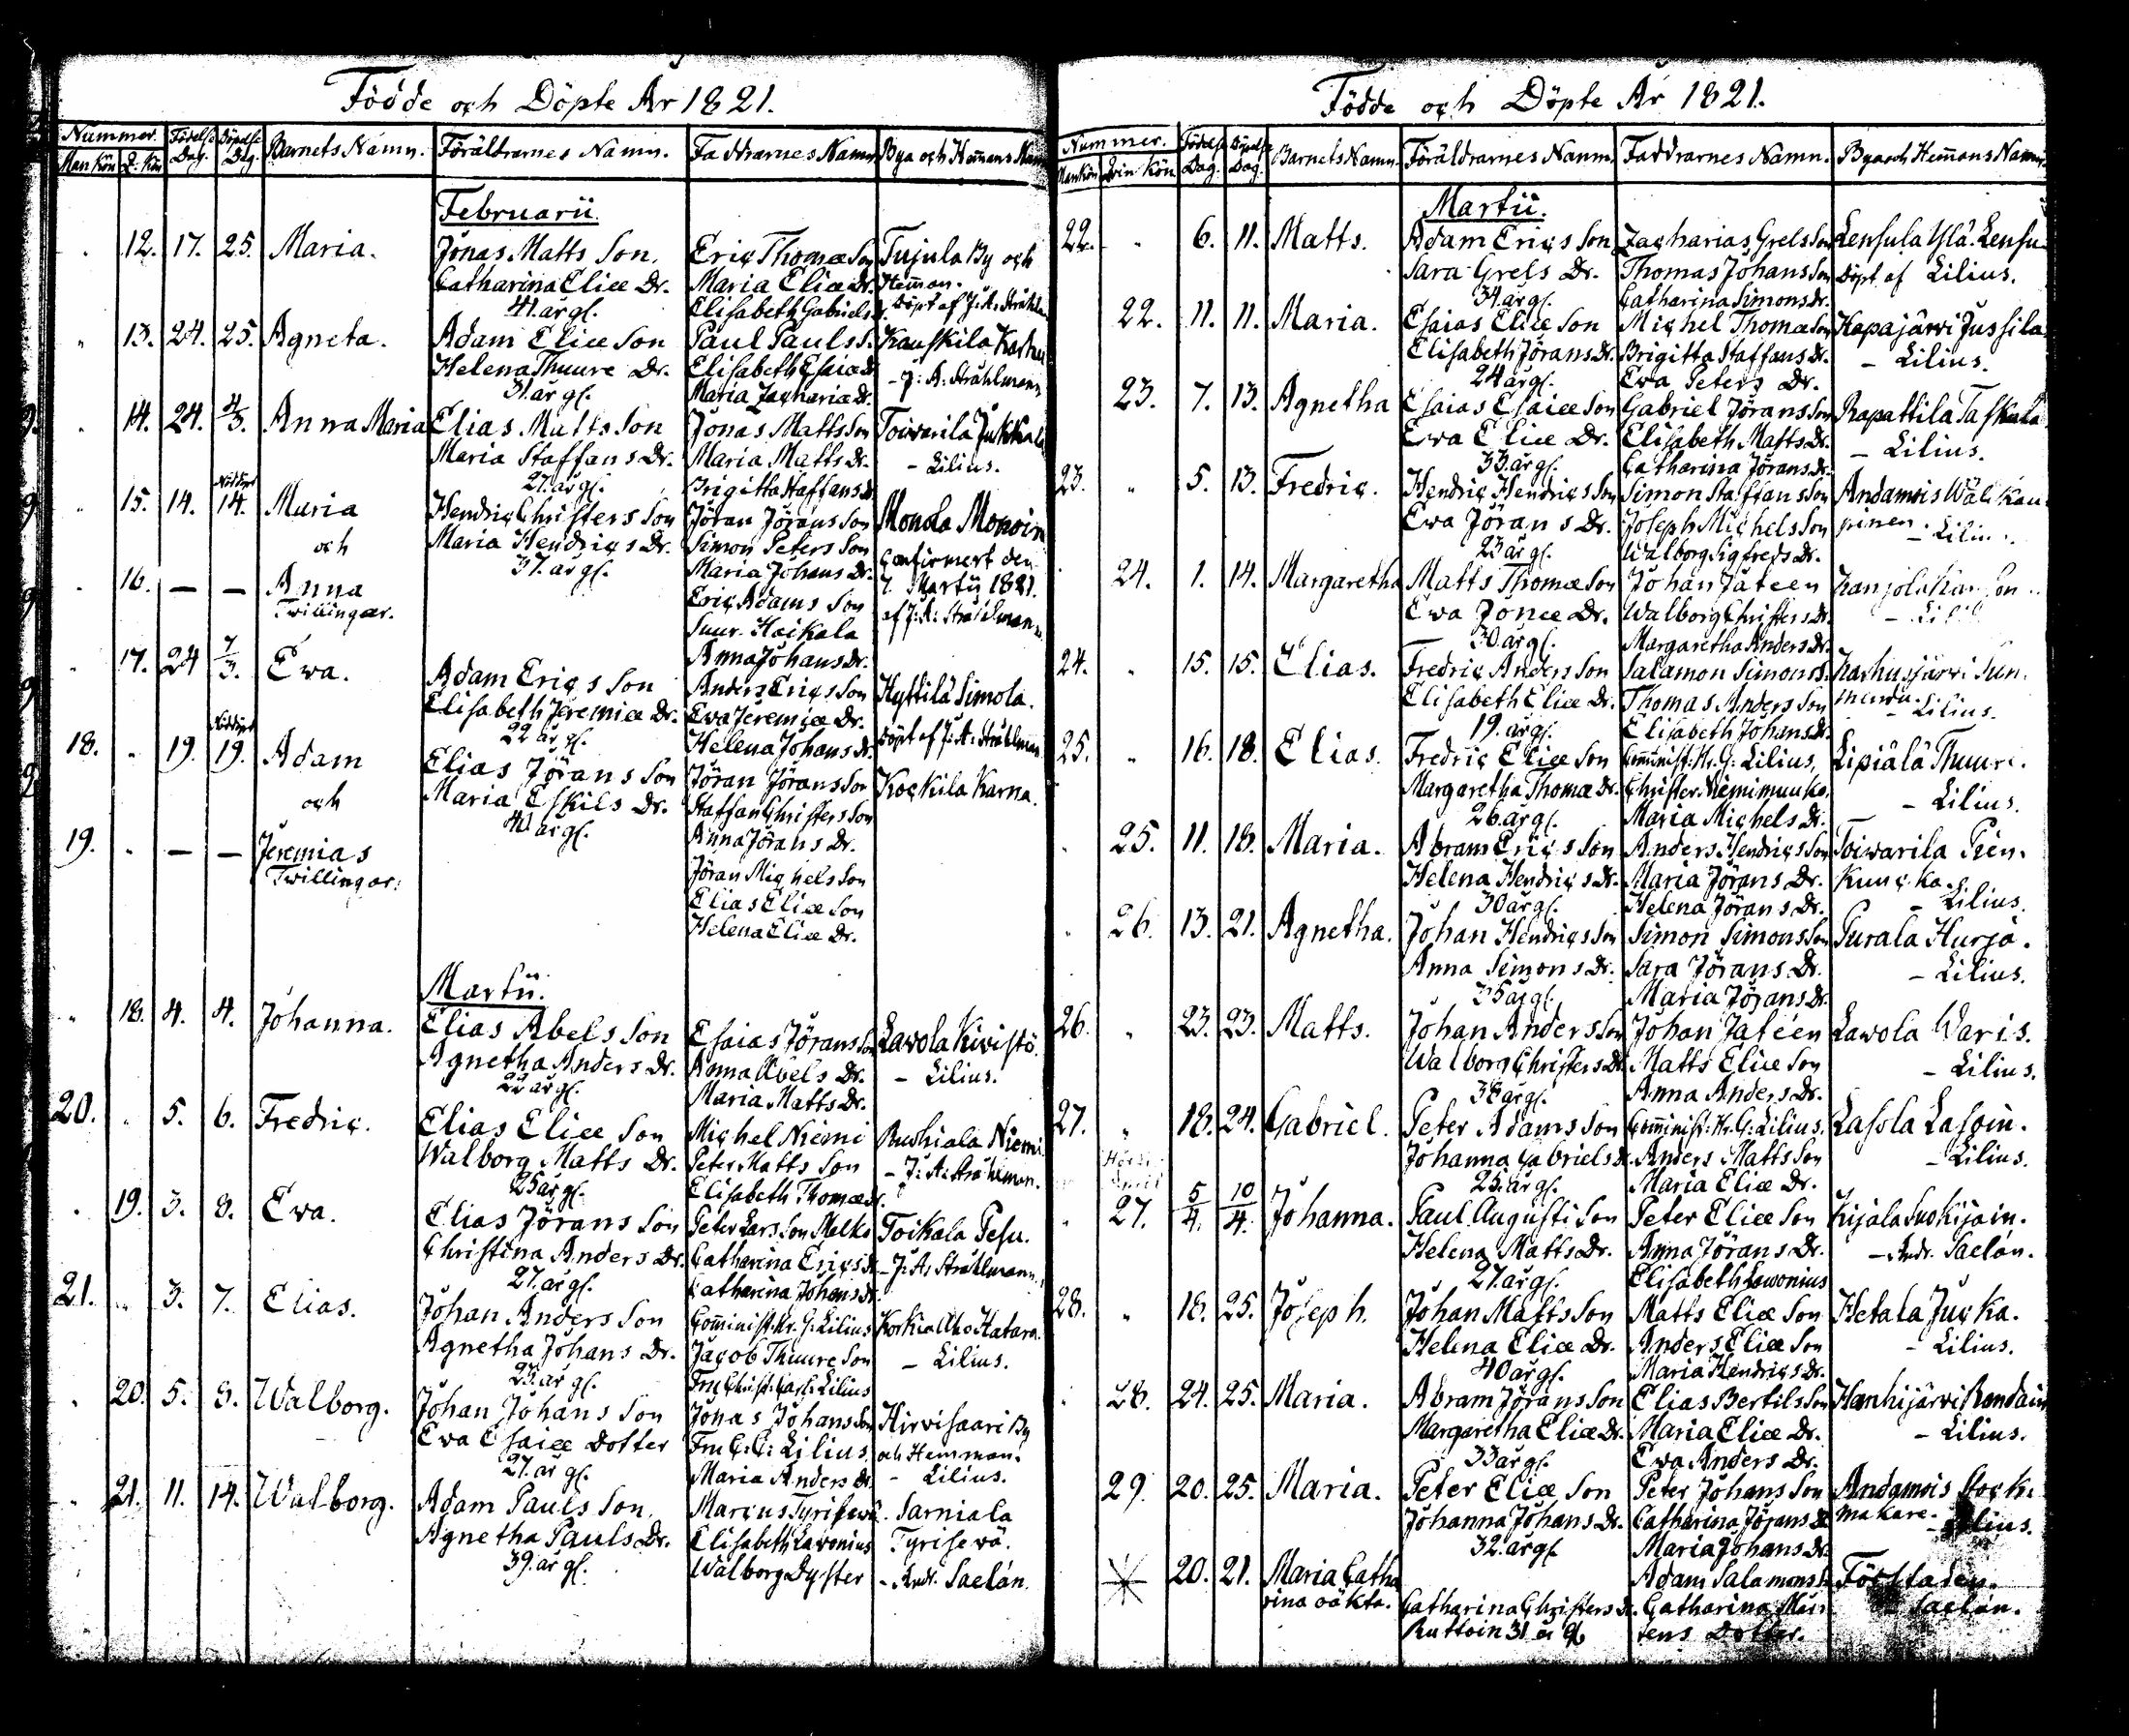 Födde och Döpte År 1821.
Nummer. Födelse Dag. Döpelse Dag. Barnets Namn. Föräldrarnes Namn. Faddrarnes Namn Bya och Hemmans Namn
Man Kön Q. Kön
Februarii.
12. 17. 25. Maria. Jonas Matts Son. Eric Thomæ Son Tujula By och
Catharina Eliæ Dr. Maria Eliæ Dr. Hemman.
41. år gl. Elisabeth Gabriels Dr. Döpt af J: A: Stråhlman
13. 24. 25. Agneta. Adam Eliæ Son Paul Pauls S. Kauskila
Helena Thuure Dr. Elisabeth Esaiæ Dr. - J: A: Stråhlmann
31. år gl. Maria Zachariæ Dr.
14. 24. 4/3. Anna Maria Elias Matts Son Jonas Matts Son Toivarila Jukkala
Maria Staffans Dr. Maria Matts Dr. - Lilius.
27. år gl. Brigitta Staffans Dr.
15. 14. Nöddöpt 14. Maria Hendric Christers Son Jöran Jörans Son Monola Monoin
och Maria Hendrics Dr. Simon Peters Son Confirmert den
37. år gl. Maria Johans Dr. 7. Martii 1821.
16. — — Anna Eric Adams Son af J: A: Stråhlmann.
Twillingar. Suur-Heikala
Anna Johans Dr.
17. 24 7/3. Ewa. Adam Erics Son Anders Erics Son Hyttilä Simola.
Elisabeth Jeremiæ Dr. Ewa Jeremiæ Dr.
22 år gl. Helena Johans Dr. Döpt af J: A: Stråhlman
18. 19. Nöddöpt 19. Adam Elias Jörans Son Jöran Jörans Son Kockila Karna.
och Maria Eskils Dr. Staffan Christers Son
40 år gl. Anna Jörans Dr.
19. — — Jeremias Jöran Michels Son
Twillingar. Elias Eliæ Son
Helena Eliæ Dr.
Martii.
18. 4. 4. Johanna. Elias Abels Son Esaias Jörans Son Lavola Kivistö.
Agnetha Anders Dr. Anna Abels Dr. - Lilius.
22 år gl. Maria Matts Dr.
20. 5. 6. Fredric. Elias Eliæ Son Michel Niemi Ruohiala Niemi.
Walborg Matts Dr. Peter Matts Son - J: A: Stråhlman.
25 år gl. Elisabeth Thomæ Dr.
19. 3. 8. Ewa. Elias Jörans Son Peter Lars Son Melko Toikala Pesu.
Christina Anders Dr. Catharina Erics Dr. - J: A: Stråhlmann.
27. år gl. Catharina Johans Dr.
21. 3. 7. Elias. Johan Anders Son Comminist. Hr. G: Lilius Korkia Aho Hatara.
Agnetha Johans Dr. Jacob Thuure Son - Lilius.
23. år gl. Fru Christ: Carl: Lilius
20. 5. 8. Walborg. Johan Johans Son Jonas Johans Son Hirvisaari By
Ewa Esaiæ Dotter Fru C: C: Lilius och Hemman.
27. år gl. Maria Anders Dr. - Lilius.
21. 11. 14. Walborg. Adam Pauls Son. Marcus Tyrisevä. Sarniala
Agnetha Pauls Dr. Elisabeth Lavonius Tyrisevä.
39. år gl. Walborg Dyster - Andr. Saelán.
Födde och Döpte År 1821.
Nummer. Födelse Dag. Döpelse Dag. Barnets Namn. Föräldrarnes Namn. Faddrarnes Namn. Bya och Hemmans Namn
Man Kön Qvin Kön
Martii.
22. 6. 11. Matts. Adam Erics Son Zacharias Grels Son Lensula Ylä-Lensu
Sara Grels Dr. Thomas Johans Son Döpt af Lilius.
34 år gl. Catharina Simons Dr.
22. 11. 11. Maria. Esaias Eliæ Son Michel Thomæ Son Hapajärvi Jussila
Elisabeth Jörans Dr. Brigitta Staffans Dr. - Lilius.
24 år gl. Ewa Peters Dr.
23. 7. 13. Agnetha Esaias Esaiæ Son Gabriel Jörans Son Rapattila Taskala
Ewa Eliæ Dr. Elisabeth Matts Dr. - Lilius.
33. år gl. Catharina Jörans Dr.
23. 5. 13. Fredric. Hendric Hendrics Son Simon Staffans Son Andamois Wäli Kau
Ewa Jörans Dr. Joseph Michels Son pinen. - Lilius.
23 år gl. Walborg Sigfreds Dr.
24. 1. 14. Margaretha Matts Thomæ Son Johan Jateen
Ewa Jonæ Dr. Walborg Christers Dr.
30 år gl. Margaretha Anders Dr.
24. 15. 15. Elias. Fredric Anders Son Salamon Simons S. Karhusjärvi
Elisabeth Eliæ Dr. Thomas Anders Son - Lilius.
19. år gl. Elisabeth Johans Dr.
25. 16. 18. Elias. Fredric Eliæ Son Comminist: Hr. G: Lilius, Lipiälä Thuure.
Margaretha Thomæ Dr. Christer Niemimuuko - Lilius.
26. år gl. Maria Michels Dr.
25. 11. 18. Maria. Abram Erics Son Anders Hendrics Son Toivarila Pien.
Helena Hendrics Dr. Maria Jörans Dr. Kuuc-ka.
30 år gl. Helena Jörans Dr. - Lilius.
26. 13. 21. Agnetha. Johan Hendrics Son Simon Simons Son Purala Hurja.
Anna Simons Dr. Sara Jörans Dr. - Lilius.
35 år gl. Maria Jörans Dr.
26. 23. 23. Matts. Johan Anders Son Johan Jateen Lavola Waris.
Walborg Christers Dr. Matts Eliæ Son - Lilius.
38 år gl. Anna Anders Dr.
27. 18. 24. Gabriel. Peter Adams Son Comminist: Hr. G: Lilius. Lasola Lasoin.
Johanna Gabriels Dr. Anders Matts Son - Lilius.
23. år gl. Maria Eliæ Dr.
27. 5/4. 10/4. Johanna. Paul Augusti Son Peter Eliæ Son Kijala Suo Kijain.
Helena Matts Dr. Anna Jörans Dr. - Andr. Saelán.
27. år gl. Elisabeth Lavonius
28. 18. 25. Joseph. Johan Matts Son Matts Eliæ Son Hetala Jucka.
Helena Eliæ Dr. Anders Eliæ Son - Lilius.
40 år gl. Maria Hendrics Dr.
28. 24. 25. Maria. Abram Jörans Son Elias Bertils Son Hanhijärvi Rondain
Margaretha Eliæ Dr. Maria Eliæ Dr. - Lilius.
33 år gl. Ewa Anders Dr.
29. 20. 25. Maria. Peter Eliæ Son Peter Johans Son Andamois Stock.
Johanna Johans Dr. Catharina Jörans Dr. makare. - Lilius.
32. år gl. Maria Johans Dr.
20. 21. Maria Catha Adam Salamons S. Förstaden.
rina oäkta. Catharina Christers Dr. Catharina Mår - Saelán.
Ruttoin 31 år gl tens Dotter.